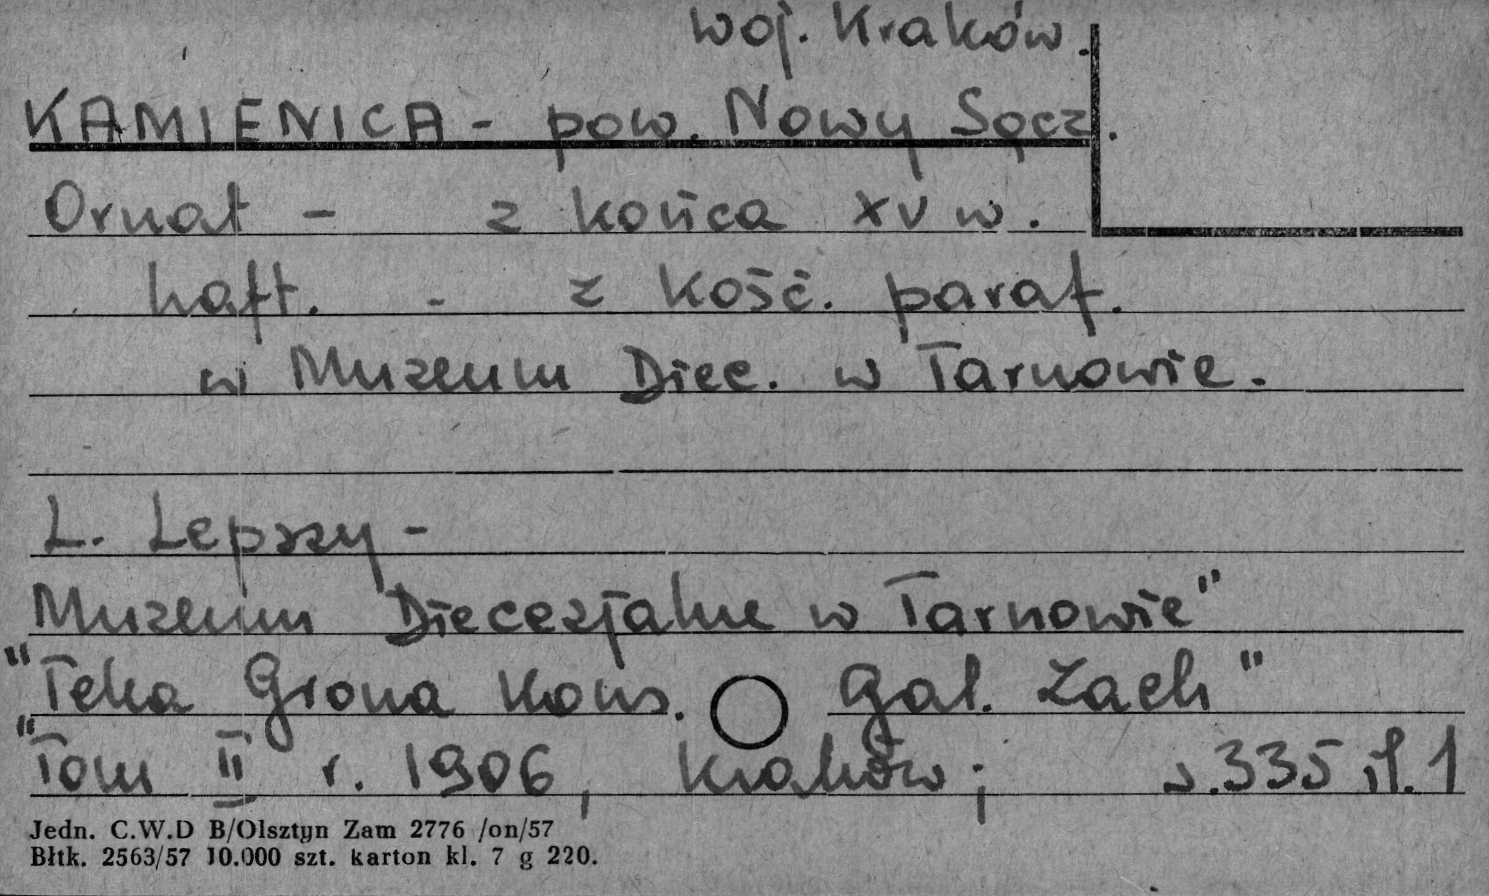 woj. Kraków.
KAMIENICA - pow. Nowy Sącz.
Ornat - z końca XV w.
haft. - z kość. paraf.
w Muzeum Diec. w Tarnowie.
L. Lepszy -
Muzeum Diecezjalne w Tarnowie"
"Teka Grona Kons. Gal. Zach"
"Tom II r. 1906, Kraków; s.335 il.1
Jedn. C.W.D B/Olsztyn Zam 2776 /on/57
Błtk. 2563/57 10.000 szt. karton kl. 7 g 220.